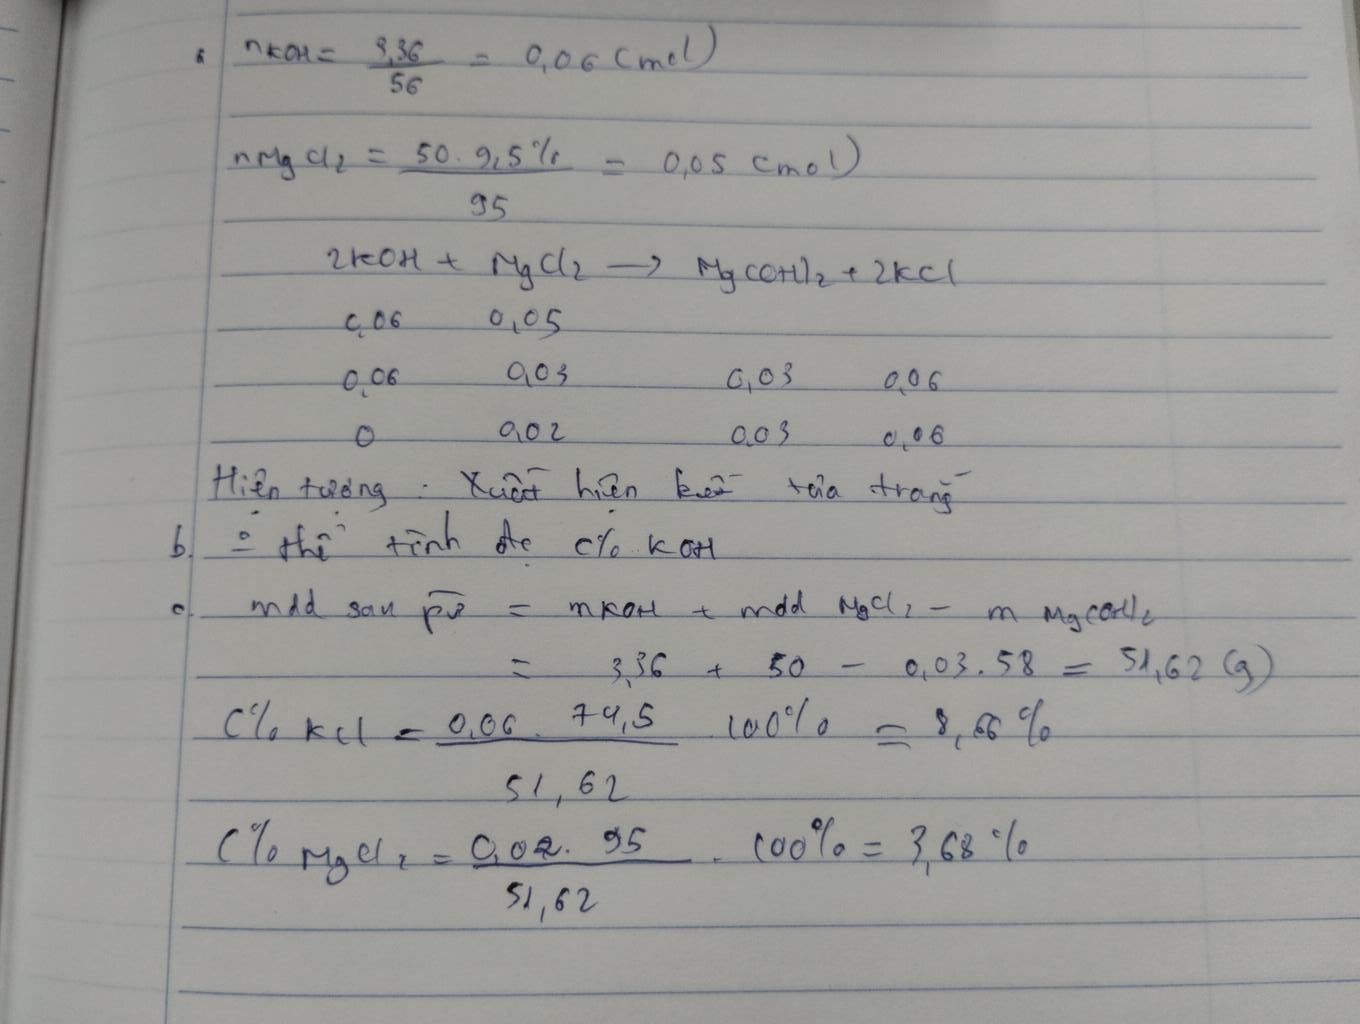 a nKOH = 3,36 / 56 = 0,06 (mol)
nMgCl2 = 50. 9,5% / 95 = 0,05 (mol)
2KOH + MgCl2 → Mg(OH)2 + 2KCl
0,06 0,05
0,06 0,03 0,03 0,06
0 0,02 0,03 0,06
Hiện tượng : Xuất hiện kết tủa trắng
b. thể tính đc C% KOH
c. mdd sau pư = mKOH + mdd MgCl2 - m Mg(OH)2
= 3,36 + 50 - 0,03.58 = 51,62 (g)
C% KCl = 0,06. 74,5 / 51,62 . 100% = 8,66%
C% MgCl2 = 0,02. 95 / 51,62 . 100% = 3,68%